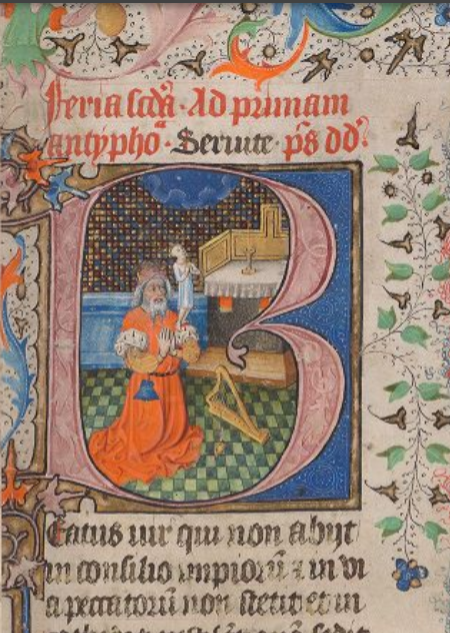 Feria scdā · Ad primam
antyphoᵃ · Seruite · p̄s dd̄
B
Eatus uir qui non abijt
in consilio impiorū ⁊ in vi
a peccatorū non stetit et in